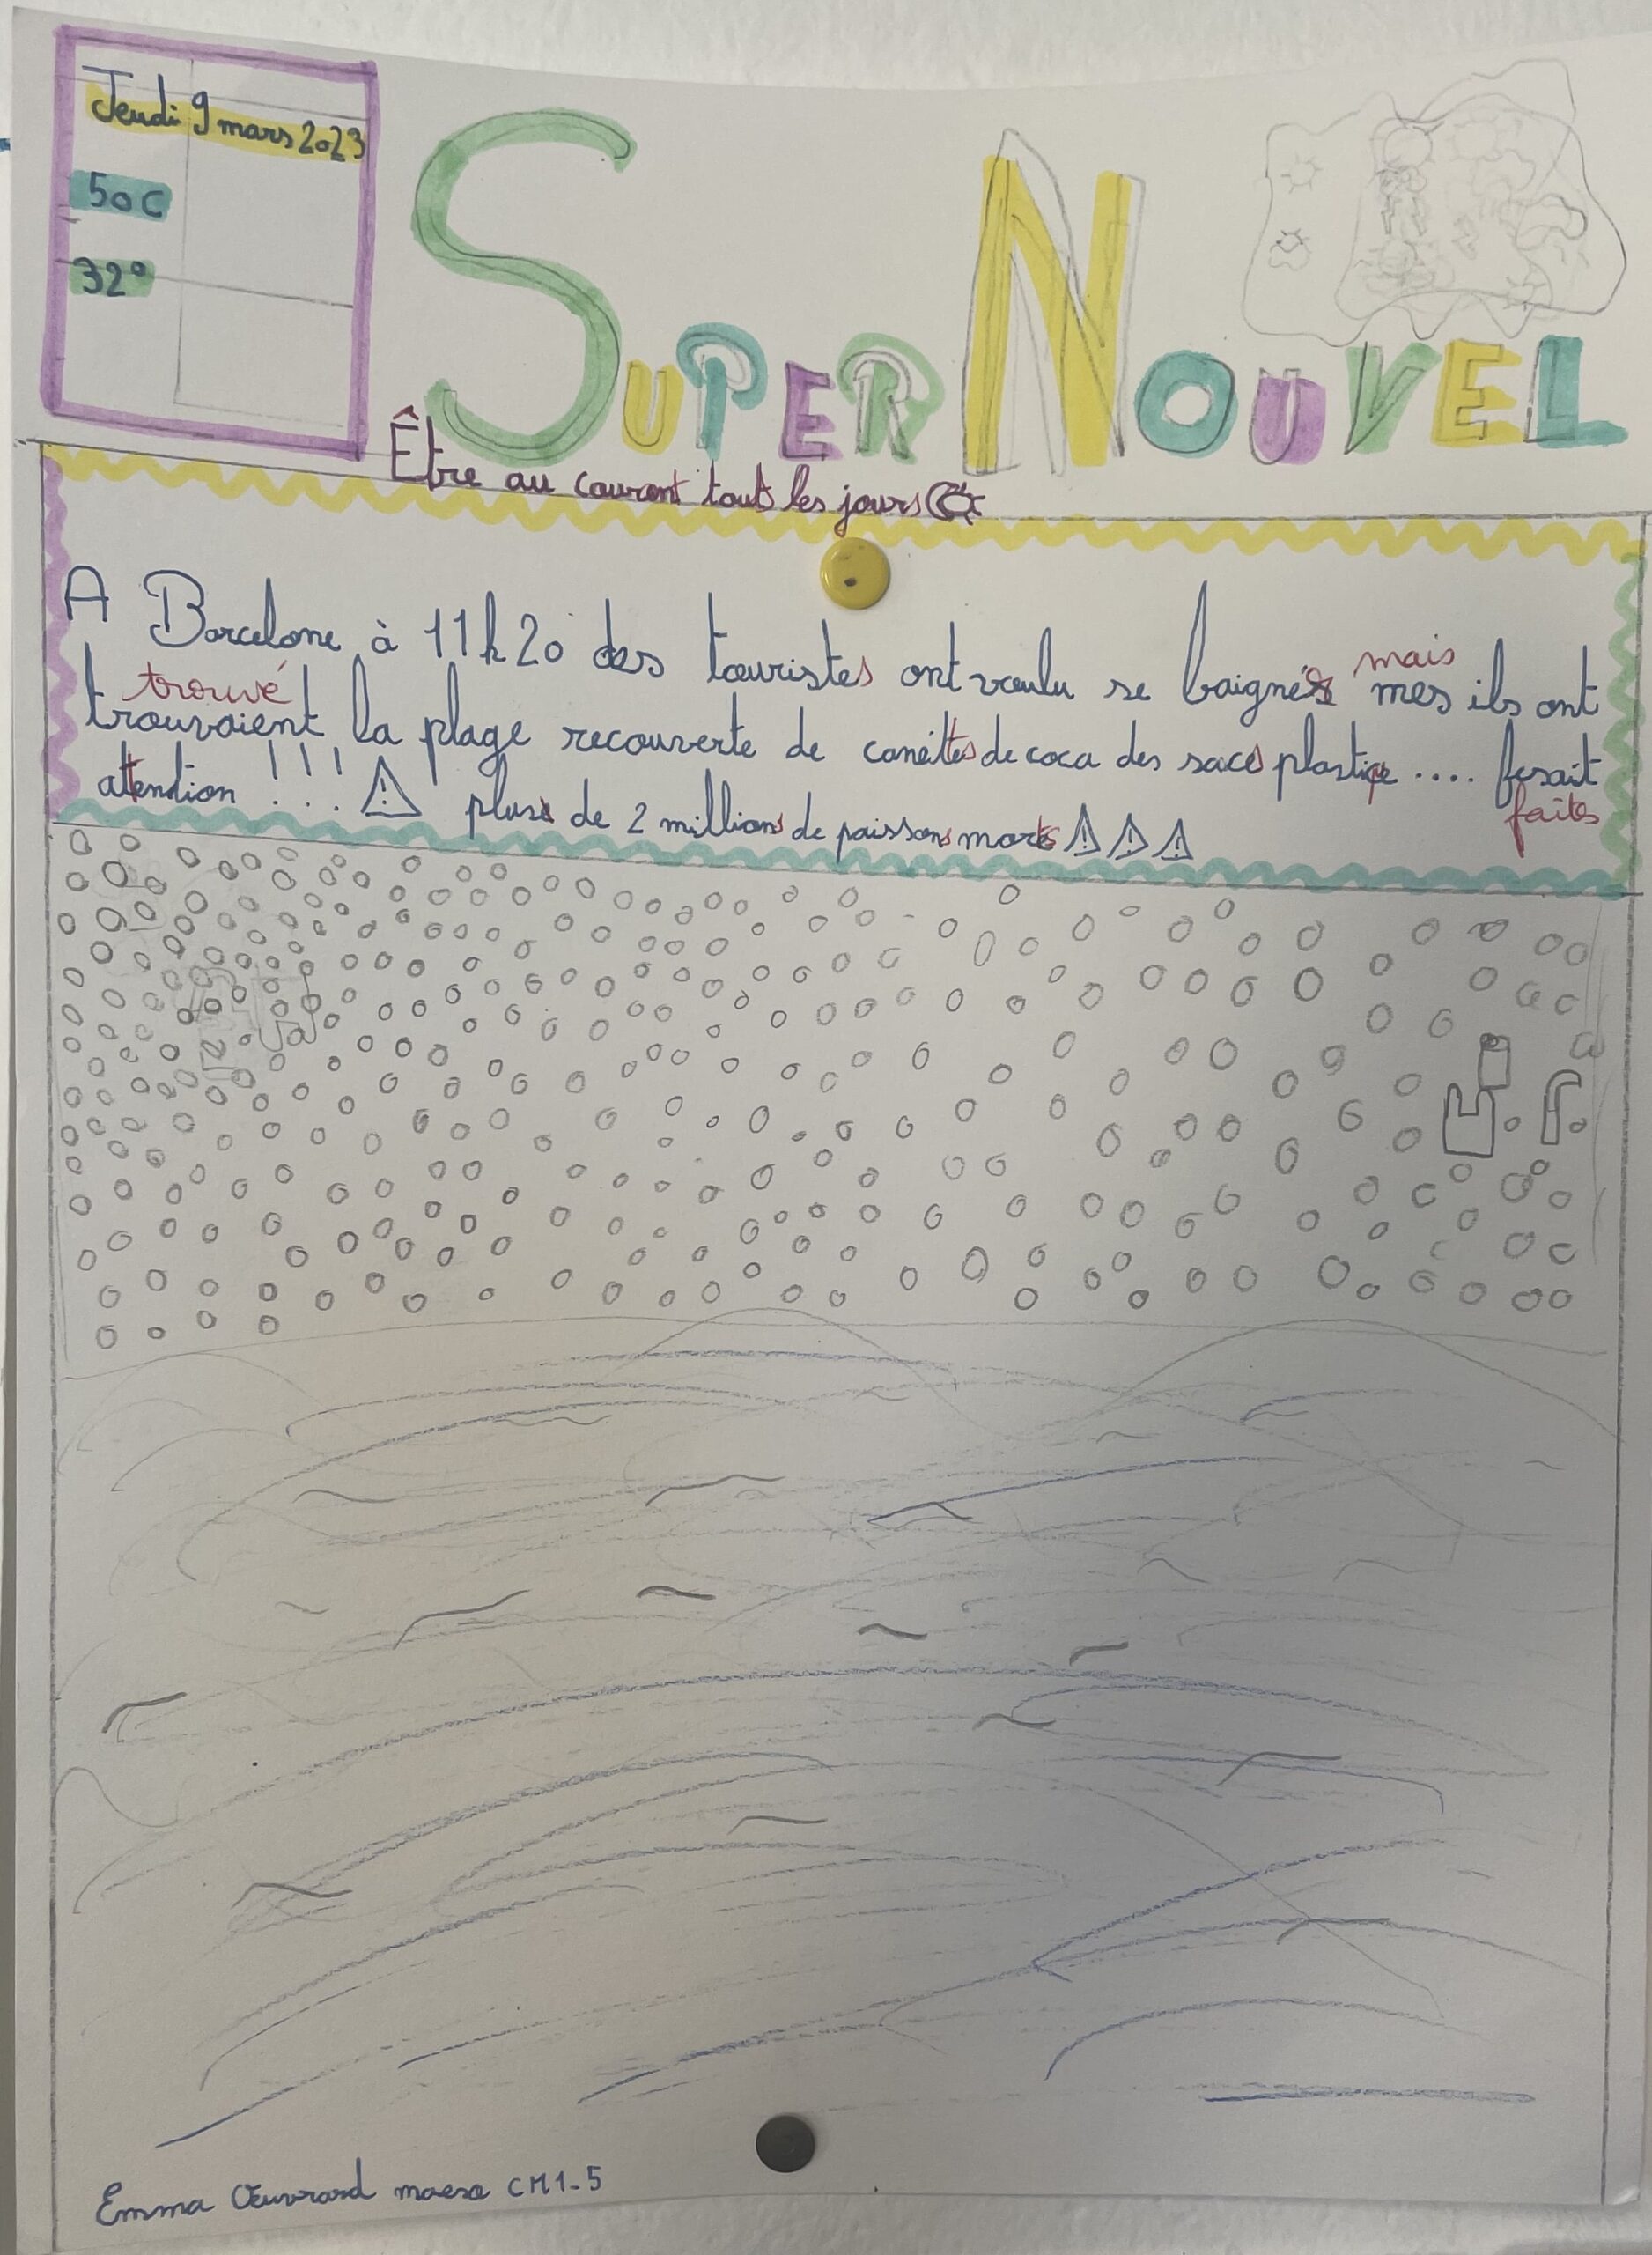 Jeudi 9 mars 2023
50 c
32°
SUPER NOUVEL
Être au courant touts les jours
A Barcelone à 11h20 des touristes ont voulu se baignés mes ils ont
mais
trouvé
trouvaient la plage recouverte de canéttes de coca des sacs plastiqe .... fesait
attention !!! ⚠ plus de 2 millions de poissons morts ⚠ ⚠ ⚠
faites
Emma Œuvrard maesa CM1-5